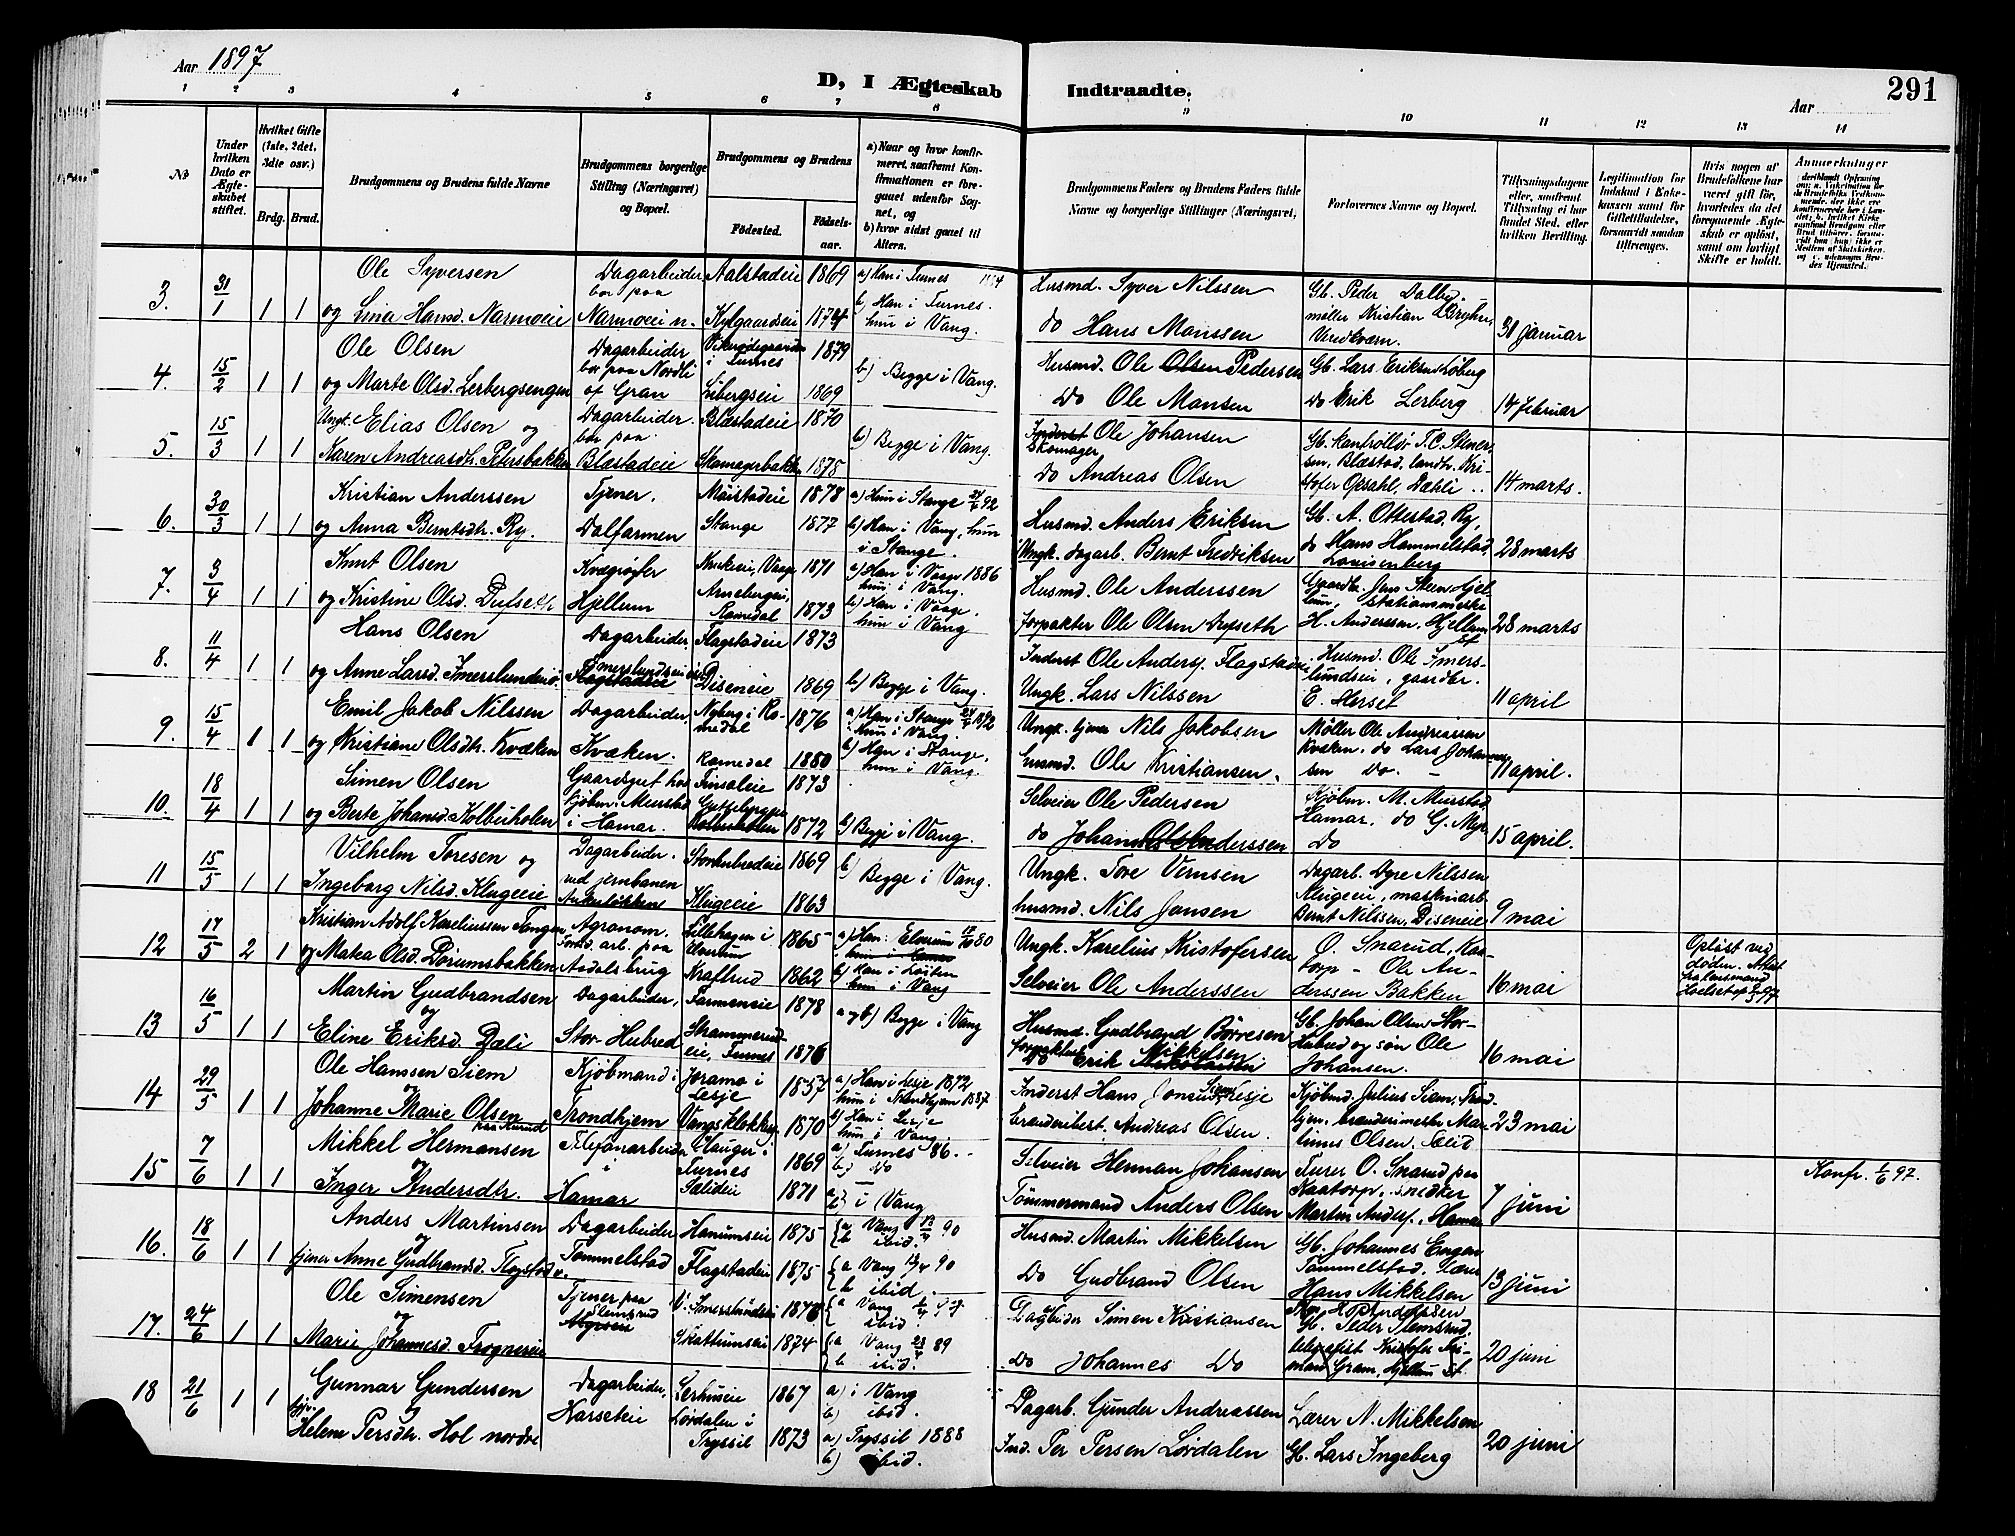 Aar 1897
D, I Ægteskab Indtraadte.
291
Aar
1 2 3 4 5 6 7 8 9 10 11 12 13 14
No
Under hvilken Dato er Ægteskabet stiftet.
Hvilket Gifte (1ste, 2det, 3die osv.)
Brdg. Brud.
Brudgommens og Brudens fulde Navne
Brudgommens borgerlige Stilling (Næringsvei) og Bopæl.
Brudgommens og Brudens
Födested. Födselsaar.
a) Naar og hvor konfirmeret, saafremt Konfirmationen er foregaaet udenfor Sognet, og
b) hvor sidst gaaet til Alters.
Brudgommens Faders og Brudens Faders fulde Navne og borgerlige Stillinger (Næringsvei,
Forlovernes Navne og Bopæl.
Tillysningsdagene eller, saafremt Tillysning ei har fundet Sted, efter hvilken Bevilling.
Legitimation for Indskud i Enkekassen samt for Giftetilladelse, forsaavidt saadan tiltrænges.
Hvis nogen af Brudefolkene har været gift för, hvorledes da det foregaaende Ægteskab er oplöst, samt om lovligt Skifte er holdt.
Anmerkninger
3. 31/1 1 1 Ole Syversen Dagarbeider Aalstadeie 1869 a) Han i Furnes
bor paa b) Han i Furnes.
og Lina Hansd. Narmoeie Narmoeie n. Kylgaardseie 1874 hun i Vang.
Husmd. Syver Nilssen Gb. Peder Dalby.
do Hans Monssen møller Kristian Bryhn, Vindkværn. 31 januar
4. 15/2 1 1 Ole Olsen Dagarbeider i Furnes 1879
bor paa Nordli b) Begge i Vang.
og Marte Olsd. Lerbergsengen af Gran Libergseie 1869
Husmd. Ole Olsen Pedersen Gb. Lars Eriksen Løberg
Do Ole Monsen do Erik Lerberg 14 februar
5. 15/3 1 1 Ungk. Elias Olsen og Dagarbeider Blæstadeie 1870
bor paa b) Begge i Vang.
Karen Andreasdtr. Petersbakken Blæstadeie Skomagerbakken 1875
Inderst Skomager Ole Johansen Gb. kontrollør T. C. Stenersen, Blæstad, landh. Kri-
Do Andreas Olsen stofer Opsahl, Dæhli 14 marts.
6. 30/3 1 1 Kristian Anderssen Tjener. Maistadeie 1878 a) Hun i Stange 92
og Anna Berntsdtr. Ry. Dalfarmen Stange 1877 b) Han i Vang, hun i Stange.
Husmd. Anders Eriksen Gb. A. Ottestad, Ry,
Ungk. dagarb. Bernt Fredriksen do Hans Hammelstad, Louisenberg 28 marts
7. 3/4 1 1 Knut Olsen Kvægrøgter 1871 a) Han i Vaage 1886
hun i Vang.
og Kristine Olsd. Dufseth Hjellum Romedal 1873 b) Han i Vaage. hun i Vang
Husmd. Ole Anderssen Gaardbr. Jens Steen Hjellum, stationsmester
Forpakter Ole Olsen Dufseth H. Anderssen, Hjellum st. 28 marts
8. 11/4 1 1 Hans Olsen Dagarbeider Flagstadeie 1873
og Anne Larsd. Imerslundeie Imerslundseie Flagstadeie Diseneie 1869 b) Begge i Vang.
Inderst Ole Anders. Flagstadeie Husmd. Ole Imerslundseie, gaardbr.
Ungk. Lars Nilssen E. Herset 11 april
9. 15/4 1 1 Emil Jakob Nilssen Dagarbeider Nyberg i Romedal 1876 a) Han i Stange 1892 hun i Vang.
og Kristiane Olsdtr. Kvæken Kvæken. Romedal 1880 b) Han i Stange. hun i Vang.
Ungk. tjener Nils Jakobsen Møller Ole Andreassen
husmd. Ole Kristiansen. Kvæken. do Lars Johannessen do - 11 april.
10. 18/4 1 1 Simen Olsen Gaardsgut hos Finsaleie 1873
og Berte Johansd. Kolberholen kjøbm. Murstad i Hamar. Kolberholen 1872 b) Begge i Vang.
Selveier Ole Pedersen Kjøbm. M. Murstad, Hamar, do G. Myr
do Johan Olsen Anderssen Do 15 april.
11 15/5 1 1 Vilhelm Toresen og Dagarbeider. Storhubredeie 1869
Ingeborg Nilsd. Klugeeie ved jernbanen Ankerløkken Klugeeie 1863 b) Begge i Vang.
Ungk. Tore Vernsen Dagarb. Dyre Nilssen Klugeeie, maskinarb.
husmd. Nils Jansen Bernt Nilssen, Diseneie 9 mai
12 17/5 2 1 Kristian Adolf Kareliussen Tangen Agronom. Lillehagen i Elverum 1865 a) Han: Elverum 80
og Matea Olsd. Dørumsbakken arb. paa Aadalsbrug Kraftrud 1862 b) Han i Løiten hun i Vang
Ungk. Karelius Kristofersen O. Snarud, Kaatorp - Ole An-
Selveier Ole Anderssen derssen Bakken 16 mai
Opløst ved døden. Attest fra lensmand
13 16/5 1 1 Martin Gudbrandsen Dagarbeider, Farmeneie 1878 a og b) Begge i Vang
og
Eline Eriksd. Dæli Stor-Hubred Strammerudeie, Furnes 1876
Husmd. Gudbrand Børresen Gb. Johan Olsen Stor-
forpakter Do Erik Mikkelsen Mikolaissen Hubred og søn Ole Johansen. 16 mai
14 29/5 1 1 Ole Hanssen Siem Kjøbmand i Joramo i Lesje 1857 a) Han i Lesje 1872
og hun i Trondhjem 1887
Johanne Marie Olsen Trondhjem Vangsklokkerg. 1870 b) Han i Lesje hun i Vang.
Inderst Hans Jonsen Siem Lesje Kjøbmd. Julius Siem, Trond-
brænderibest. Andreas Olsen. hjem, brænderimester Marinius Olsen, Sælid 23 mai
15 7/6 1 1 Mikkel Hermansen Telefonarbeider Clauger i Furnes 1869 a) Furnes 86.
og i b) do
Inger Andersdtr. Hamar Sælideie 1871 a) b) i Vang
Selveier Herman Johansen Furer O. Snarud pas
Tømmermand Anders Olsen Kaatorp, snedker Martin Anders., Hamar 7 juni
Konfr. 1/6 97.
16. 18/6 1 1 Anders Martinsen Dagarbeider Hanumseie 1875 a Vang 90
og b ibid.
tjener Anne Gudbrandsd. Flagstad Tommelstad Flagstadeie 1875 a Vang 90
b ibid.
Husmd. Martin Mikkelsen Gb. Johannes Engen Tommelstad. Lærer
Do Gudbrand Olsen Hans Mikkelsen 13 juni
17. 24/6 1 1 Ole Simensen Tjener paa Slemsrud V. Imerslundeie a Vang
og ibid.
Marie Johannesd. Frognereie Skattumseie 1874 a Vang 89
b ibid.
Dagarbeider Simen Kristiansen Gb. Peder Slemsrud,
Do Johannes Do telegrafist Kristofer Fri-mand Gram, Hjellum st. 20 juni
18 21/6 1 1 Gunnar Gundersen Dagarbeider, Lerhuseie 1867 a) i Vang
og b) ibid.
Helene Persdtr. Hol nordre Harseteie Lørdalen i Tryssil 1873 a) Tryssil 1888
b) ibid.
Dagarb. Gunder Andreassen Lærer N. Mikkelsen
Ind. Per Persen Lørdalen Gb. Lars Ingeberg 20 juni